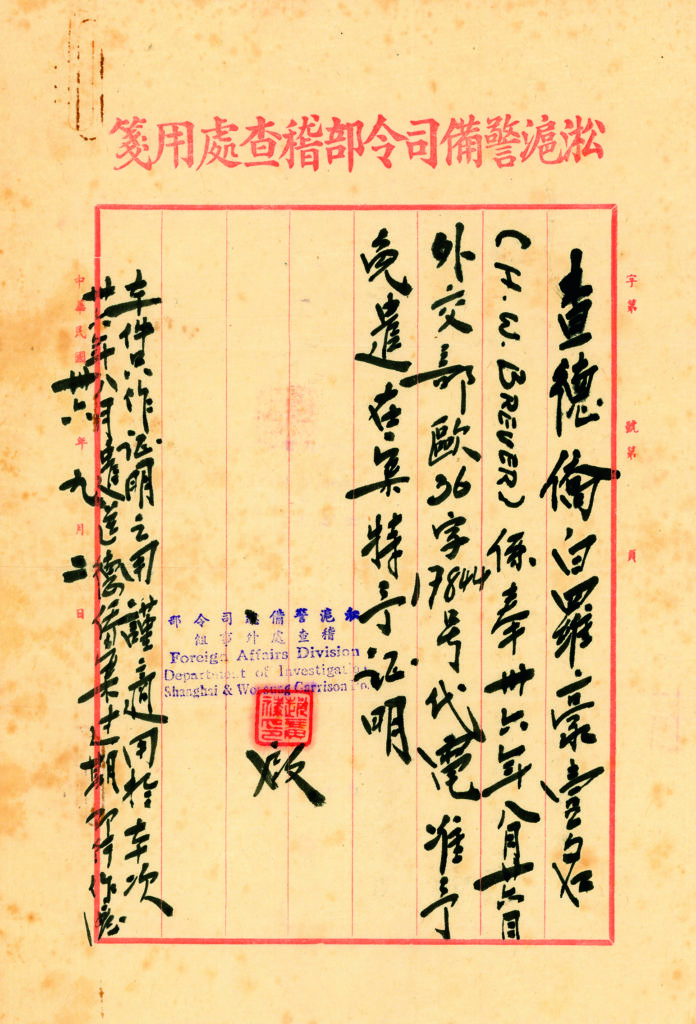 淞滬警備司令部稽查處用箋
字第　號第　頁
查德僑白羅豪壹名
(H.W.BREUER)係奉卅六年八月廿六日
外交部歐36字17844号代電准予
免遣在案特予证明
淞滬警備司令部
稽查處外事組
Foreign Affairs Division
Department of Investigation
Shanghai & Woosung Garrison
啟
本件只作证明之用謹適用於本次
卅六年八月遣送德僑案过期即行作廢
中華民國卅六年九月二日